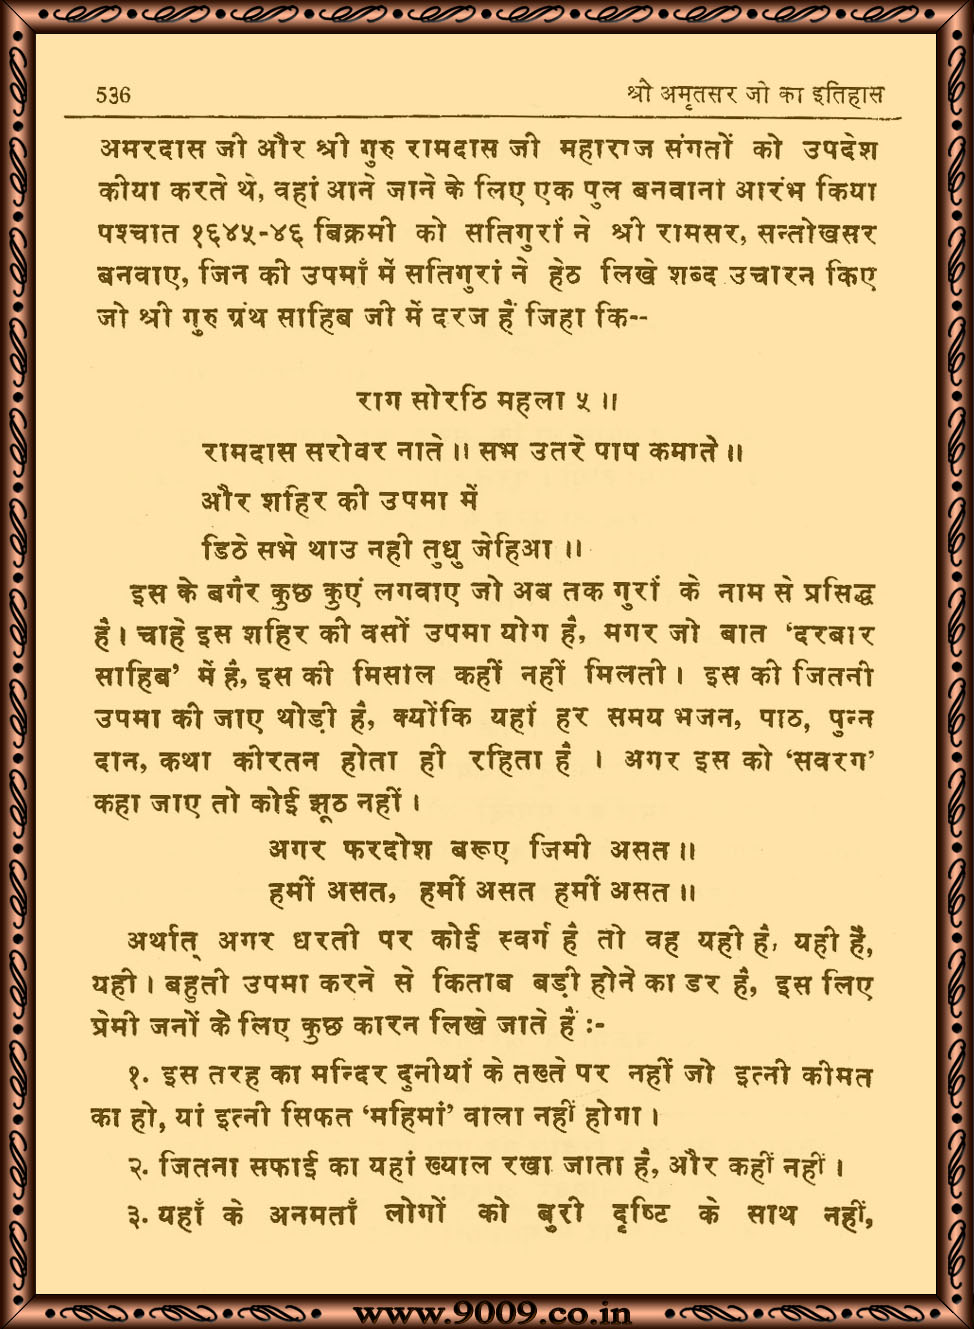 536 श्री अमृतसर जी का इतिहास
अमरदास जी और श्री गुरु रामदास जी महाराज संगतों को उपदेश
कीया करते थे, वहां आने जाने के लिए एक पुल बनवाना आरंभ किया
पश्चात १६४५-४६ बिक्रमी को सतिगुरां ने श्री रामसर, सन्तोखसर
बनवाए, जिन की उपमाँ में सतिगुरां ने हेठ लिखे शब्द उचारन किए
जो श्री गुरु ग्रंथ साहिब जी में दरज हैं जिहा कि--
राग सोरठि महला ५ ॥
रामदास सरोवर नाते ॥ सभ उतरे पाप कमाते ॥
और शहिर की उपमा में
डिठे सभे थाउ नही तुधु जेहिआ ॥
इस के बगैर कुछ कुएं लगवाए जो अब तक गुरां के नाम से प्रसिद्ध
है। चाहे इस शहिर की वसों उपमा योग है, मगर जो बात ‘दरबार
साहिब’ में है, इस की मिसाल कहीं नहीं मिलती। इस की जितनी
उपमा की जाए थोड़ी है, क्योंकि यहां हर समय भजन, पाठ, पुन्न
दान, कथा कीरतन होता ही रहिता है । अगर इस को ‘सवरग’
कहा जाए तो कोई झूठ नहीं।
अगर फरदोश बरूए जिमी असत॥
हमीं असत, हमीं असत हमीं असत॥
अर्थात् अगर धरती पर कोई स्वर्ग है तो वह यही है, यही है,
यही। बहुती उपमा करने से किताब बड़ी होने का डर है, इस लिए
प्रेमी जनों के लिए कुछ कारन लिखे जाते हैं :-
१. इस तरह का मन्दिर दुनीयां के तख्ते पर नहीं जो इत्नी कीमत
का हो, यां इत्नी सिफत ‘महिमां’ वाला नहीं होगा।
२. जितना सफाई का यहां ख्याल रखा जाता है, और कहीं नहीं।
३. यहाँ के अनमताँ लोगों को बुरी दृष्टि के साथ नहीं,
www.9009.co.in